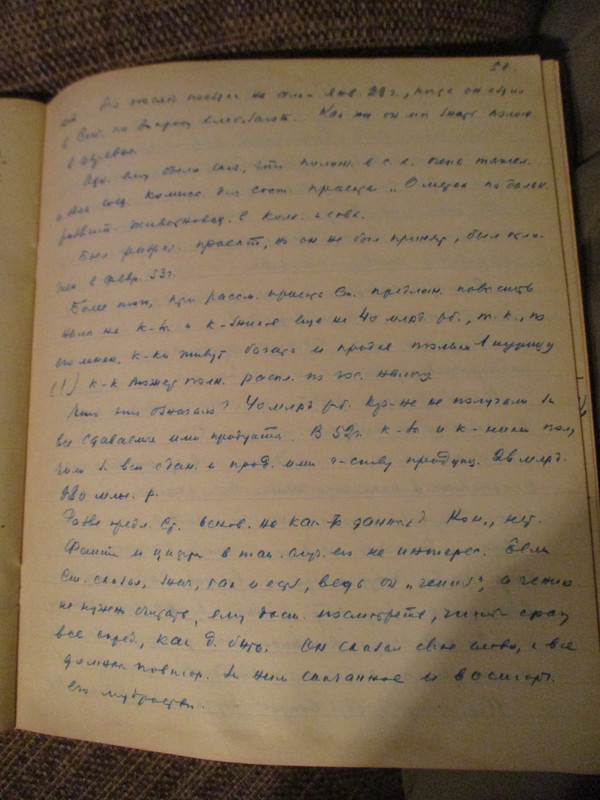 58.
Его послед. поездка на село янв. 28 г., когда он ездил
в Сиб. по вопросу хлебозагот. Как же он мог знать полож.
в деревне.
Одн. ему было сказ., что полож. в с. х. очень тяжел.
и была созд. комисс. для сост. проекта „О мерах по дальн.
развит. животновод. в колх. и совх.
Был разраб. проект, но он не был принят, был
в февр. 53 г.
Более того, при рассм. проекта Ст. предлож. повысить
налог на к-зы и к-зников еще на 40 млрд. руб., т. к., по
его мнен. к-ки живут богато и продав только 1 курицу
(!) к-к может полн. распл. по гос. налогу
Что это означало? 40 млрд руб. кр-не не получали за
все сдаваемые ими продукты. В 52 г. к-зы и к-зники пол,
чили за всю сдан. и прод. ими г-ству продукц. 26 млрд.
280 млн. р.
Разве предл. Ст. основ. на каких-то данных? Кон., нет.
Факты и цифры в так. случ. его не интерес. Если
Ст. сказал, знач., так и есть, ведь он „гений“, а гению
не нужен считать, ему дост. посмотреть, чтобы сразу
все опред., как д. быть. Он сказал свое слово, и все
должны повтор. за ним сказанное и восторг.
его мудростью.